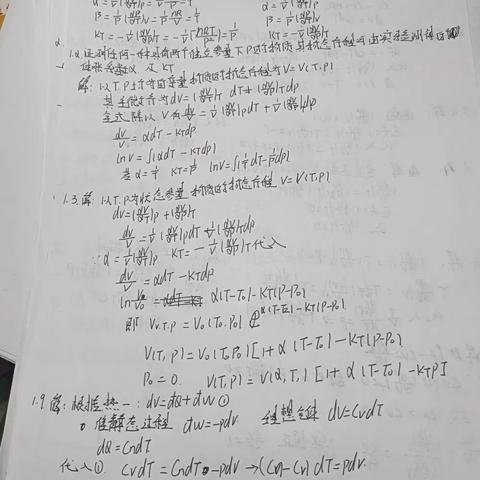 α = 1/V (∂V/∂T)p = 1/V · nR/P = 1/T
β = 1/P (∂P/∂T)v = 1/P · nR/V = 1/T
KT = -1/V (∂V/∂P)T = -1/V (-nRT/P²) = 1/P
α = 1/V (∂V/∂T)p
β = 1/P (∂P/∂T)v
KT = -1/V (∂V/∂P)T
1.2 证明任何一种具有两个独立参量 T.P 的物质 其物态方程可由实验测得
胀系数α 及 KT
解: 以T.P为状态参量 物质的物态方程为 V=V(T.P)
其全微分为 dV=(∂V/∂T)p dT+(∂V/∂P)T dp
全式除以 V 有 dV/V = 1/V (∂V/∂T)p dT + 1/V (∂V/∂P)T dp
dV/V = αdT - KTdp
lnV = ∫(αdT - KTdp)
若 α=1/T KT=1/P lnV=∫(1/T dT - 1/P dp)
1.3. 解: 以T.P为状态参量 物质的物态方程 V=V(T.P)
dV=(∂V/∂T)p+(∂V/∂P)T
dV/V = 1/V (∂V/∂T)p dT + 1/V (∂V/∂P)T dp
∵ α = 1/V (∂V/∂T)p KT = -1/V (∂V/∂P)T 代入
dV/V = αdT - KTdp
ln V/V0 = α(T-T0) - KT(P-P0)
即 V(T.P) = V0(T0.P0) e^α(T-T0)-KT(P-P0)
V(T,P) = V0(T0.P0)[1+α(T-T0)-KT(P-P0)
P0=0. V(T,P) = V(0,T0)[1+α(T-T0)-KTP]
1.9 解: 根据热一: dV=dQ+dW ①
准静态过程 dW=-pdv 理想气体 dU=CvdT
dQ=CndT
代入①. CvdT=CndT-pdv →(Cn-Cv)dT=pdv.